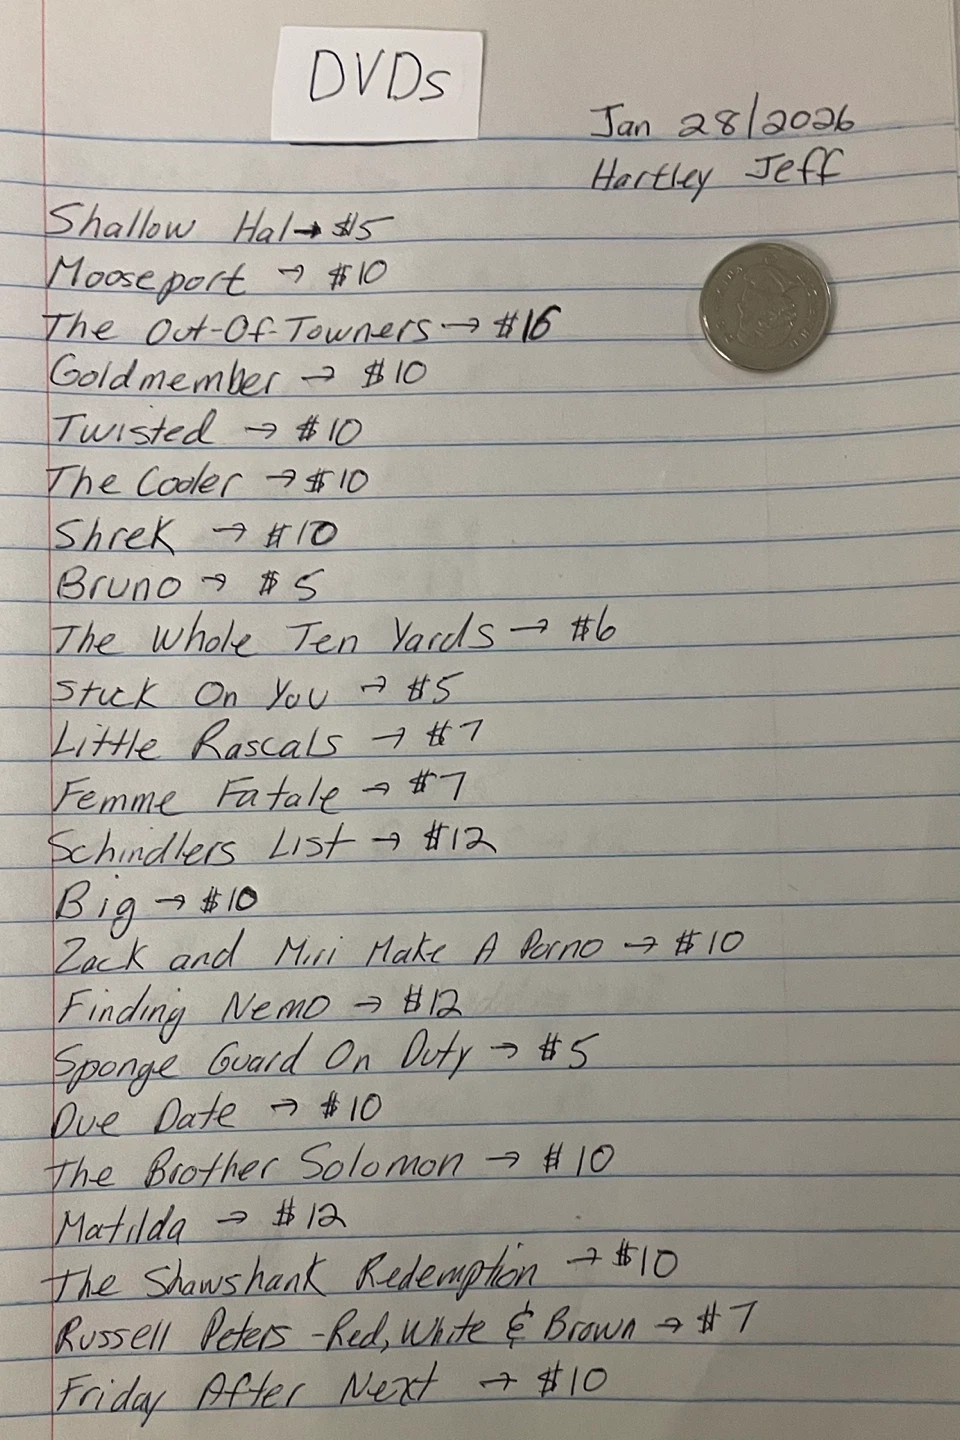 DVDs
Jan 28/2026
Hartley Jeff
Shallow Hal → $5
Mooseport → $10
The Out-Of-Towners → $16
Goldmember → $10
Twisted → $10
The Cooler → $10
Shrek → $10
Bruno → $5
The Whole Ten Yards → $6
Stuck On You → $5
Little Rascals → $7
Femme Fatale → $7
Schindlers List → $12
Big → $10
Zack and Miri Make A Porno → $10
Finding Nemo → $12
Sponge Guard On Duty → $5
Due Date → $10
The Brother Solomon → $10
Matilda → $12
The Shawshank Redemption → $10
Russell Peters - Red, White & Brown → $7
Friday After Next → $10